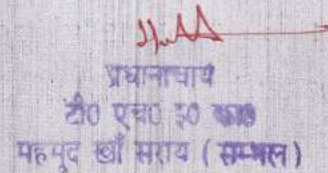 प्रधानाचार्य
टी० एच० इ०
महमूद खाँ सराय (सम्भल)